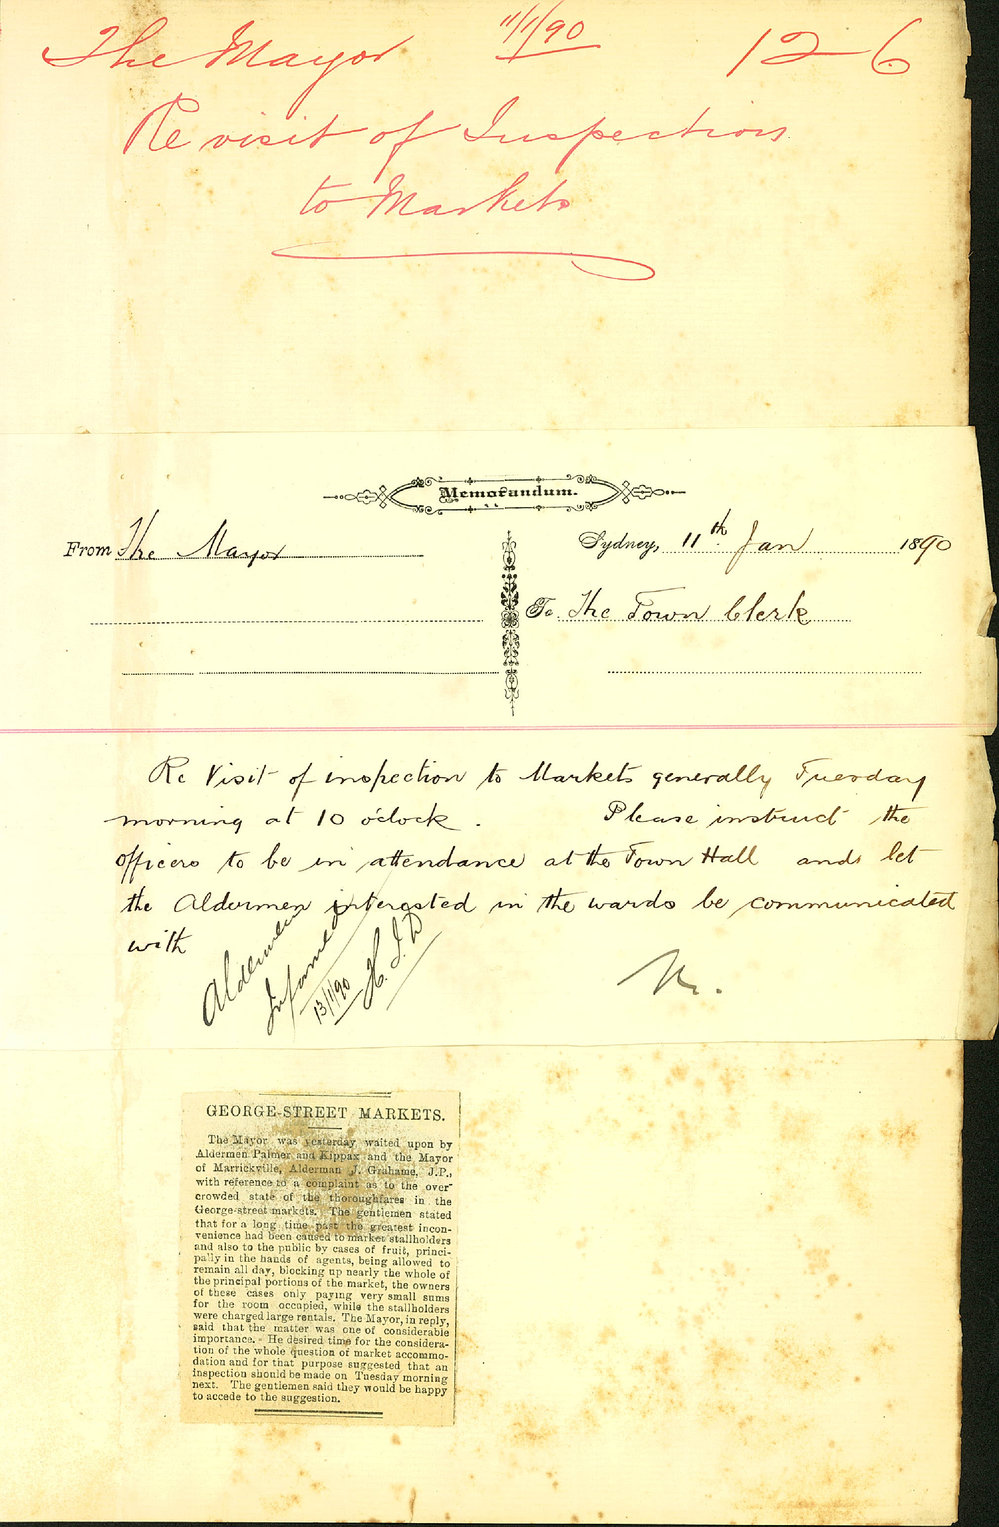 The Mayor 11/1/90 126
Re visit of Inspection
to Markets
Memorandum.
From The Mayor
Sydney, 11th Jan 1890
To The Town Clerk
Re Visit of inspection to Markets generally Tuesday
morning at 10 o'clock. Please instruct the
officers to be in attendance at the Town Hall and let
the Aldermen interested in the wards be communicated
with
Aldermen
Informed
13/1/90
H. J. D
M.
GEORGE-STREET MARKETS.
The Mayor was yesterday waited upon by
Aldermen Palmer and Kippax and the Mayor
of Marrickville, Alderman J. Grahame, J.P.,
with reference to a complaint as to the over-
crowded state of the thoroughfares in the
George-street markets. The gentlemen stated
that for a long time past the greatest incon-
venience had been caused to market stallholders
and also to the public by cases of fruit, princi-
pally in the hands of agents, being allowed to
remain all day, blocking up nearly the whole of
the principal portions of the market, the owners
of these cases only paying very small sums
for the room occupied, while the stallholders
were charged large rentals. The Mayor, in reply,
said that the matter was one of considerable
importance. He desired time for the considera-
tion of the whole question of market accommo-
dation and for that purpose suggested that an
inspection should be made on Tuesday morning
next. The gentlemen said they would be happy
to accede to the suggestion.